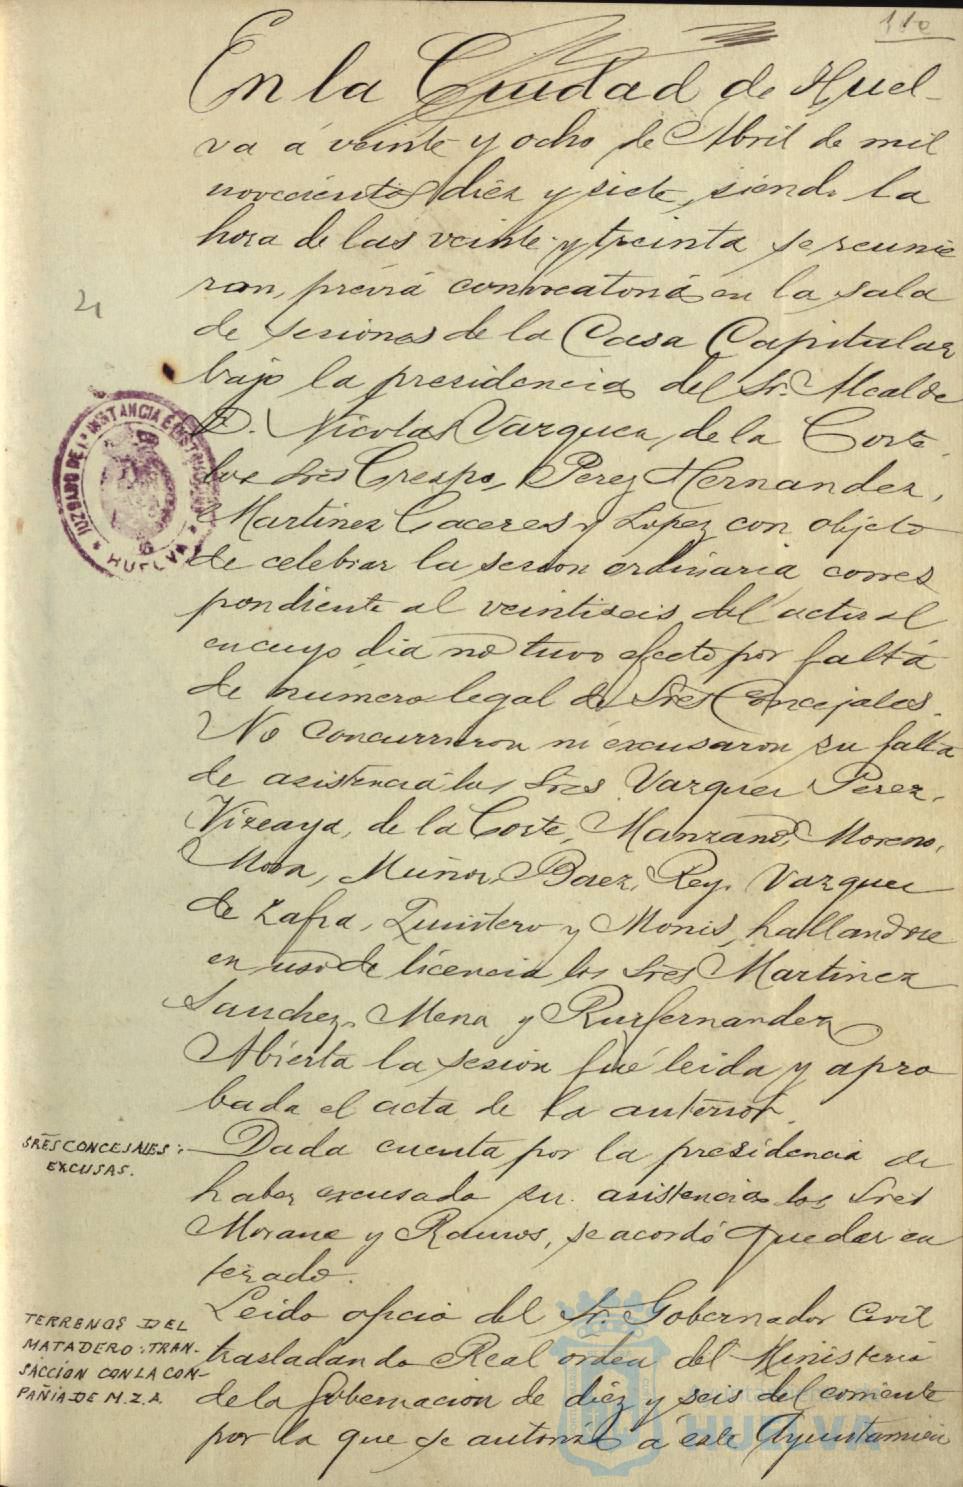 110
En la Ciudad de Huel-
va á veinte y ocho de Abril de mil
novecientos diez y siete, siendo la
hora de las veinte y treinta se reunie
ron, prévia convocatoria, en la sala
21
de sesiones de la Casa Capitular
bajo la presidencia del Sr. Alcalde
D. Nicolas Vazquez, de la Corte,
los Sres Crespo, Perez Hernandez,
Martinez Caceres y Lopez con objeto
de celebrar la sesion ordinaria corres
pondiente al veintiseis del actual
en cuyo dia no tuvo efecto por falta
de número legal de Sres Concejales.
JUZGADO DE 1ª INSTANCIA E INSTRUCCION
* HUELVA *
No concurrieron ni excusaron su falta
de asistencia los Sres Vazquez Perez,
Vizcaya, de la Corte, Manzano, Moreno,
Mora, Muñoz, Baez, Rey, Vazquez
de Zafra, Quintero y Monis, hallandose
en uso de licencia los Sres Martinez
Sanchez, Mena y Ruifernandez
Abierta la sesion fué leida y apro
bada el acta de la anterior.
SRES CONCEJALES:
EXCUSAS.
Dada cuenta por la presidencia de
haber excusado su asistencia los Sres
Morane y Ramos, se acordó quedar en
terado.
TERRENOS DEL
MATADERO: TRAN-
SACCIÓN CON LA COM-
PAÑIA DE M.Z.A.
Leido oficio del Sr. Gobernador Civil
trasladando Real orden del Ministerio
de la Gobernacion de diez y seis del corriente
por la que se autoriza á este Ayuntamien
HUELVA